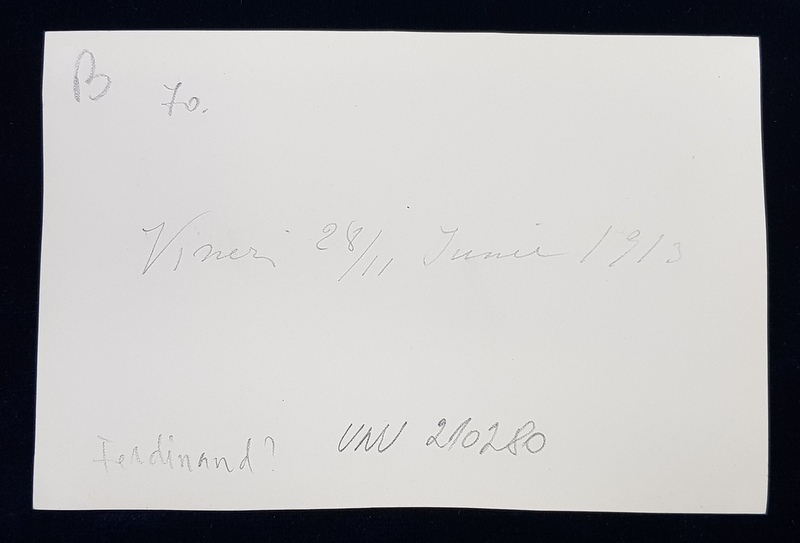 B 70.
Vineri 28/11 Iunie 1913
Ferdinand? UNV 210280